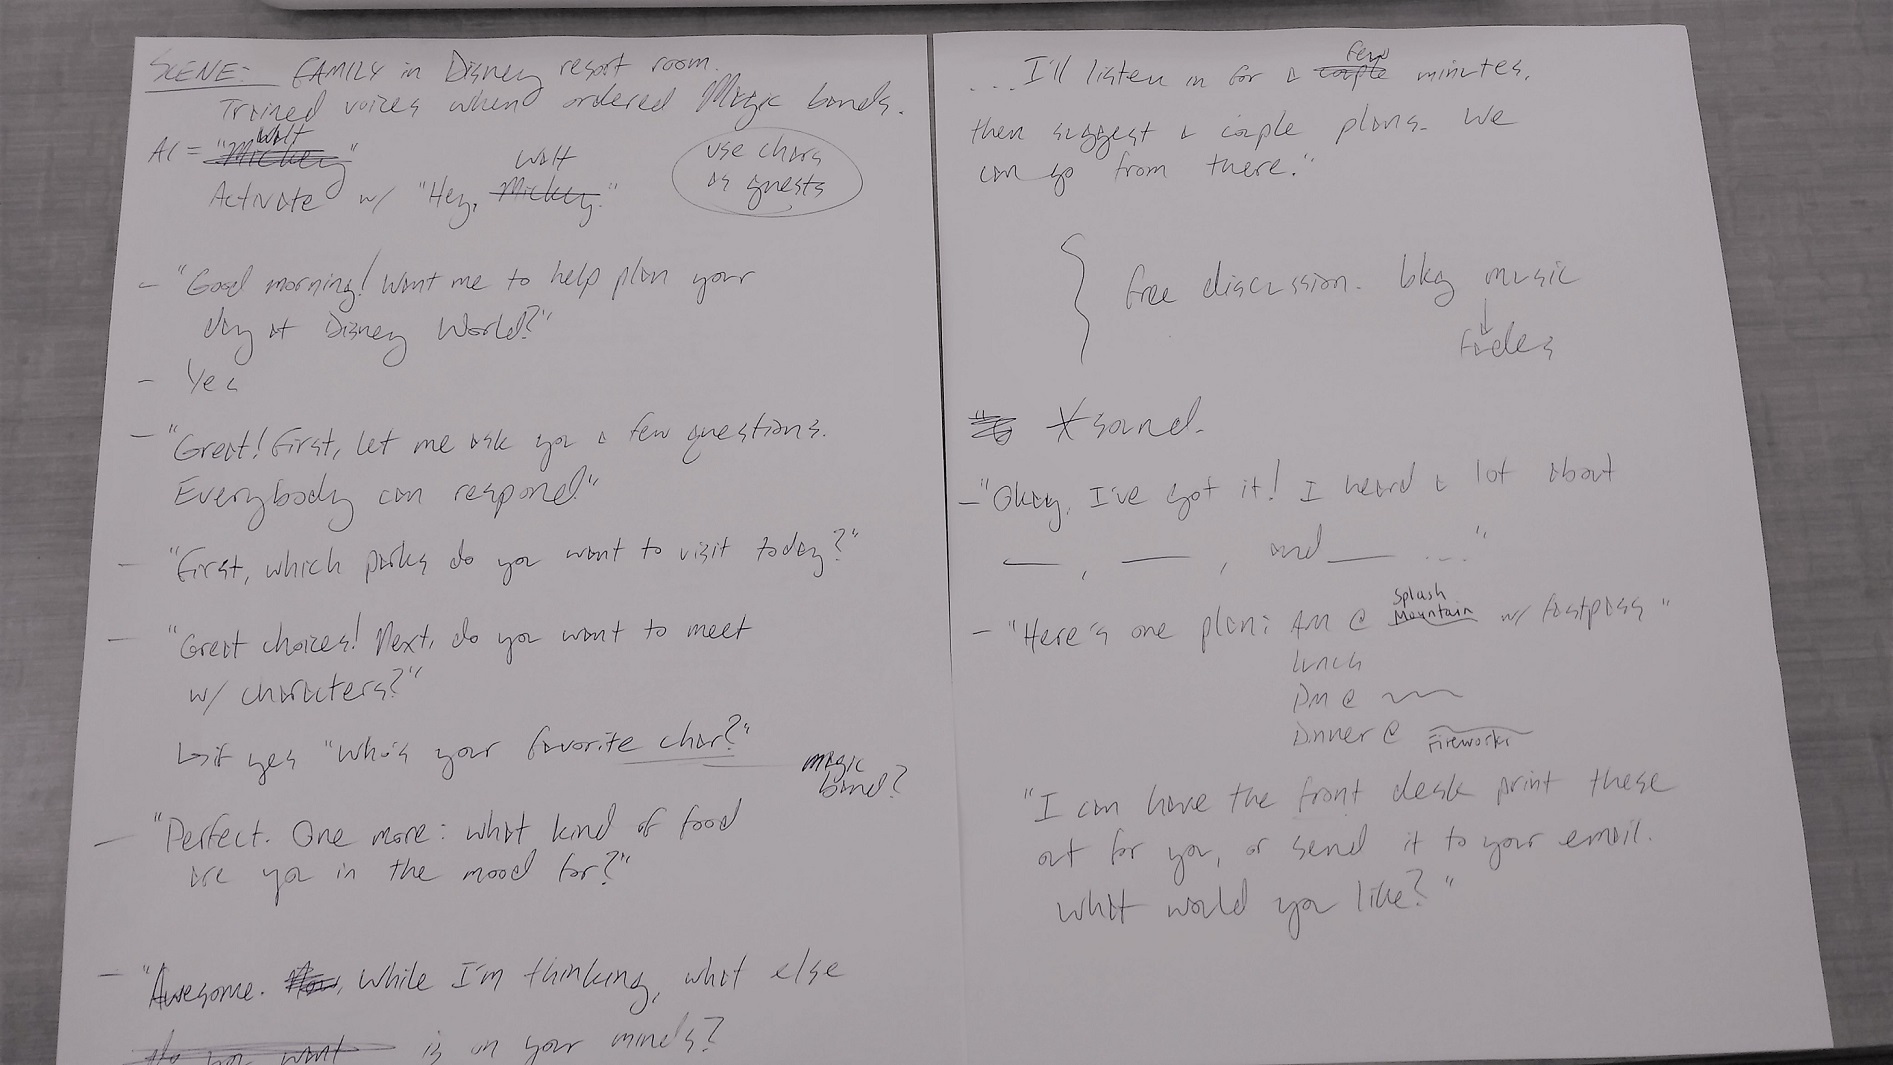 SCENE: FAMILY in Disney resort room.
Trained voices when ordered Magic bands.
Walt
AI = "Mickey"
Walt
Activate w/ "Hey, Mickey."
use chars
as guests
- "Good morning! Want me to help plan your
day at Disney World?"
- Yes
- "Great! First, let me ask you a few questions.
Everybody can respond."
- "First, which parks do you want to visit today?"
- "Great choices! Next, do you want to meet
w/ characters?"
↳ if yes "Who's your favorite char?"
magic
band?
- "Perfect. One more: what kind of food
are you in the mood for?"
- "Awesome. Now, While I'm thinking, what else
do you want is on your minds?
few
... I'll listen in for a couple minutes,
then suggest a couple plans. We
can go from there."
} free discussion. bkg music
↓
fades
* sound.
- "Okay, I've got it! I heard a lot about
__, __, and __ ..."
Splash
- "Here's one plan: AM @ Mountain w/ fastpass"
lunch
PM @
Dinner @ Fireworks
"I can have the front desk print these
out for you, or send it to your email.
What would you like?"